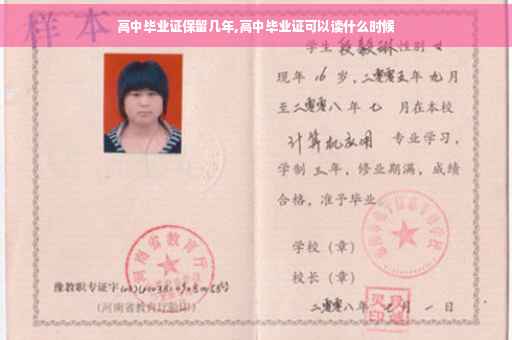 高中毕业证保留几年,高中毕业证可以读什么时候
样本
学生 段毅琳 性别 女
现年 16 岁,二零零五年 九 月
至二零零八年 七 月在本校
计算机应用 专业学习,
学制 三 年,修业期满,成绩
合格,准予毕业
学校(章)
校长(章)
二零零八年 七 月 一 日
河南省教育厅
豫教职专证字
(河南省教育厅验印)